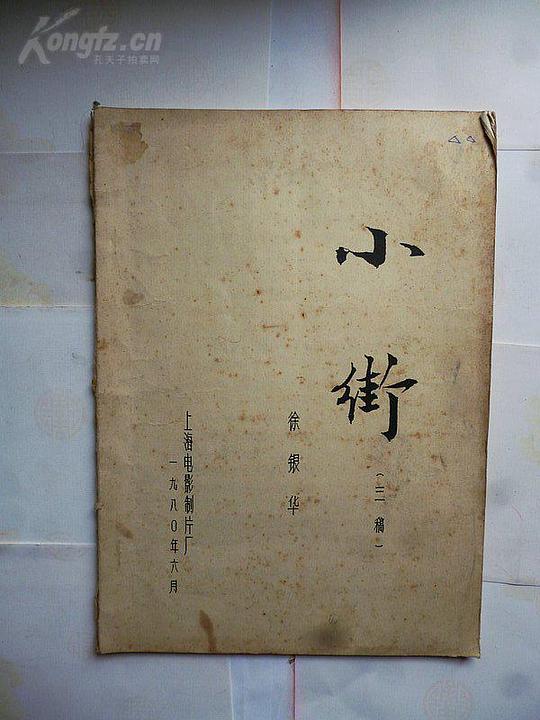 Kongfz.cn
孔夫子拍卖网
小街
(三稿)
徐银华
上海电影制片厂
一九八〇年六月